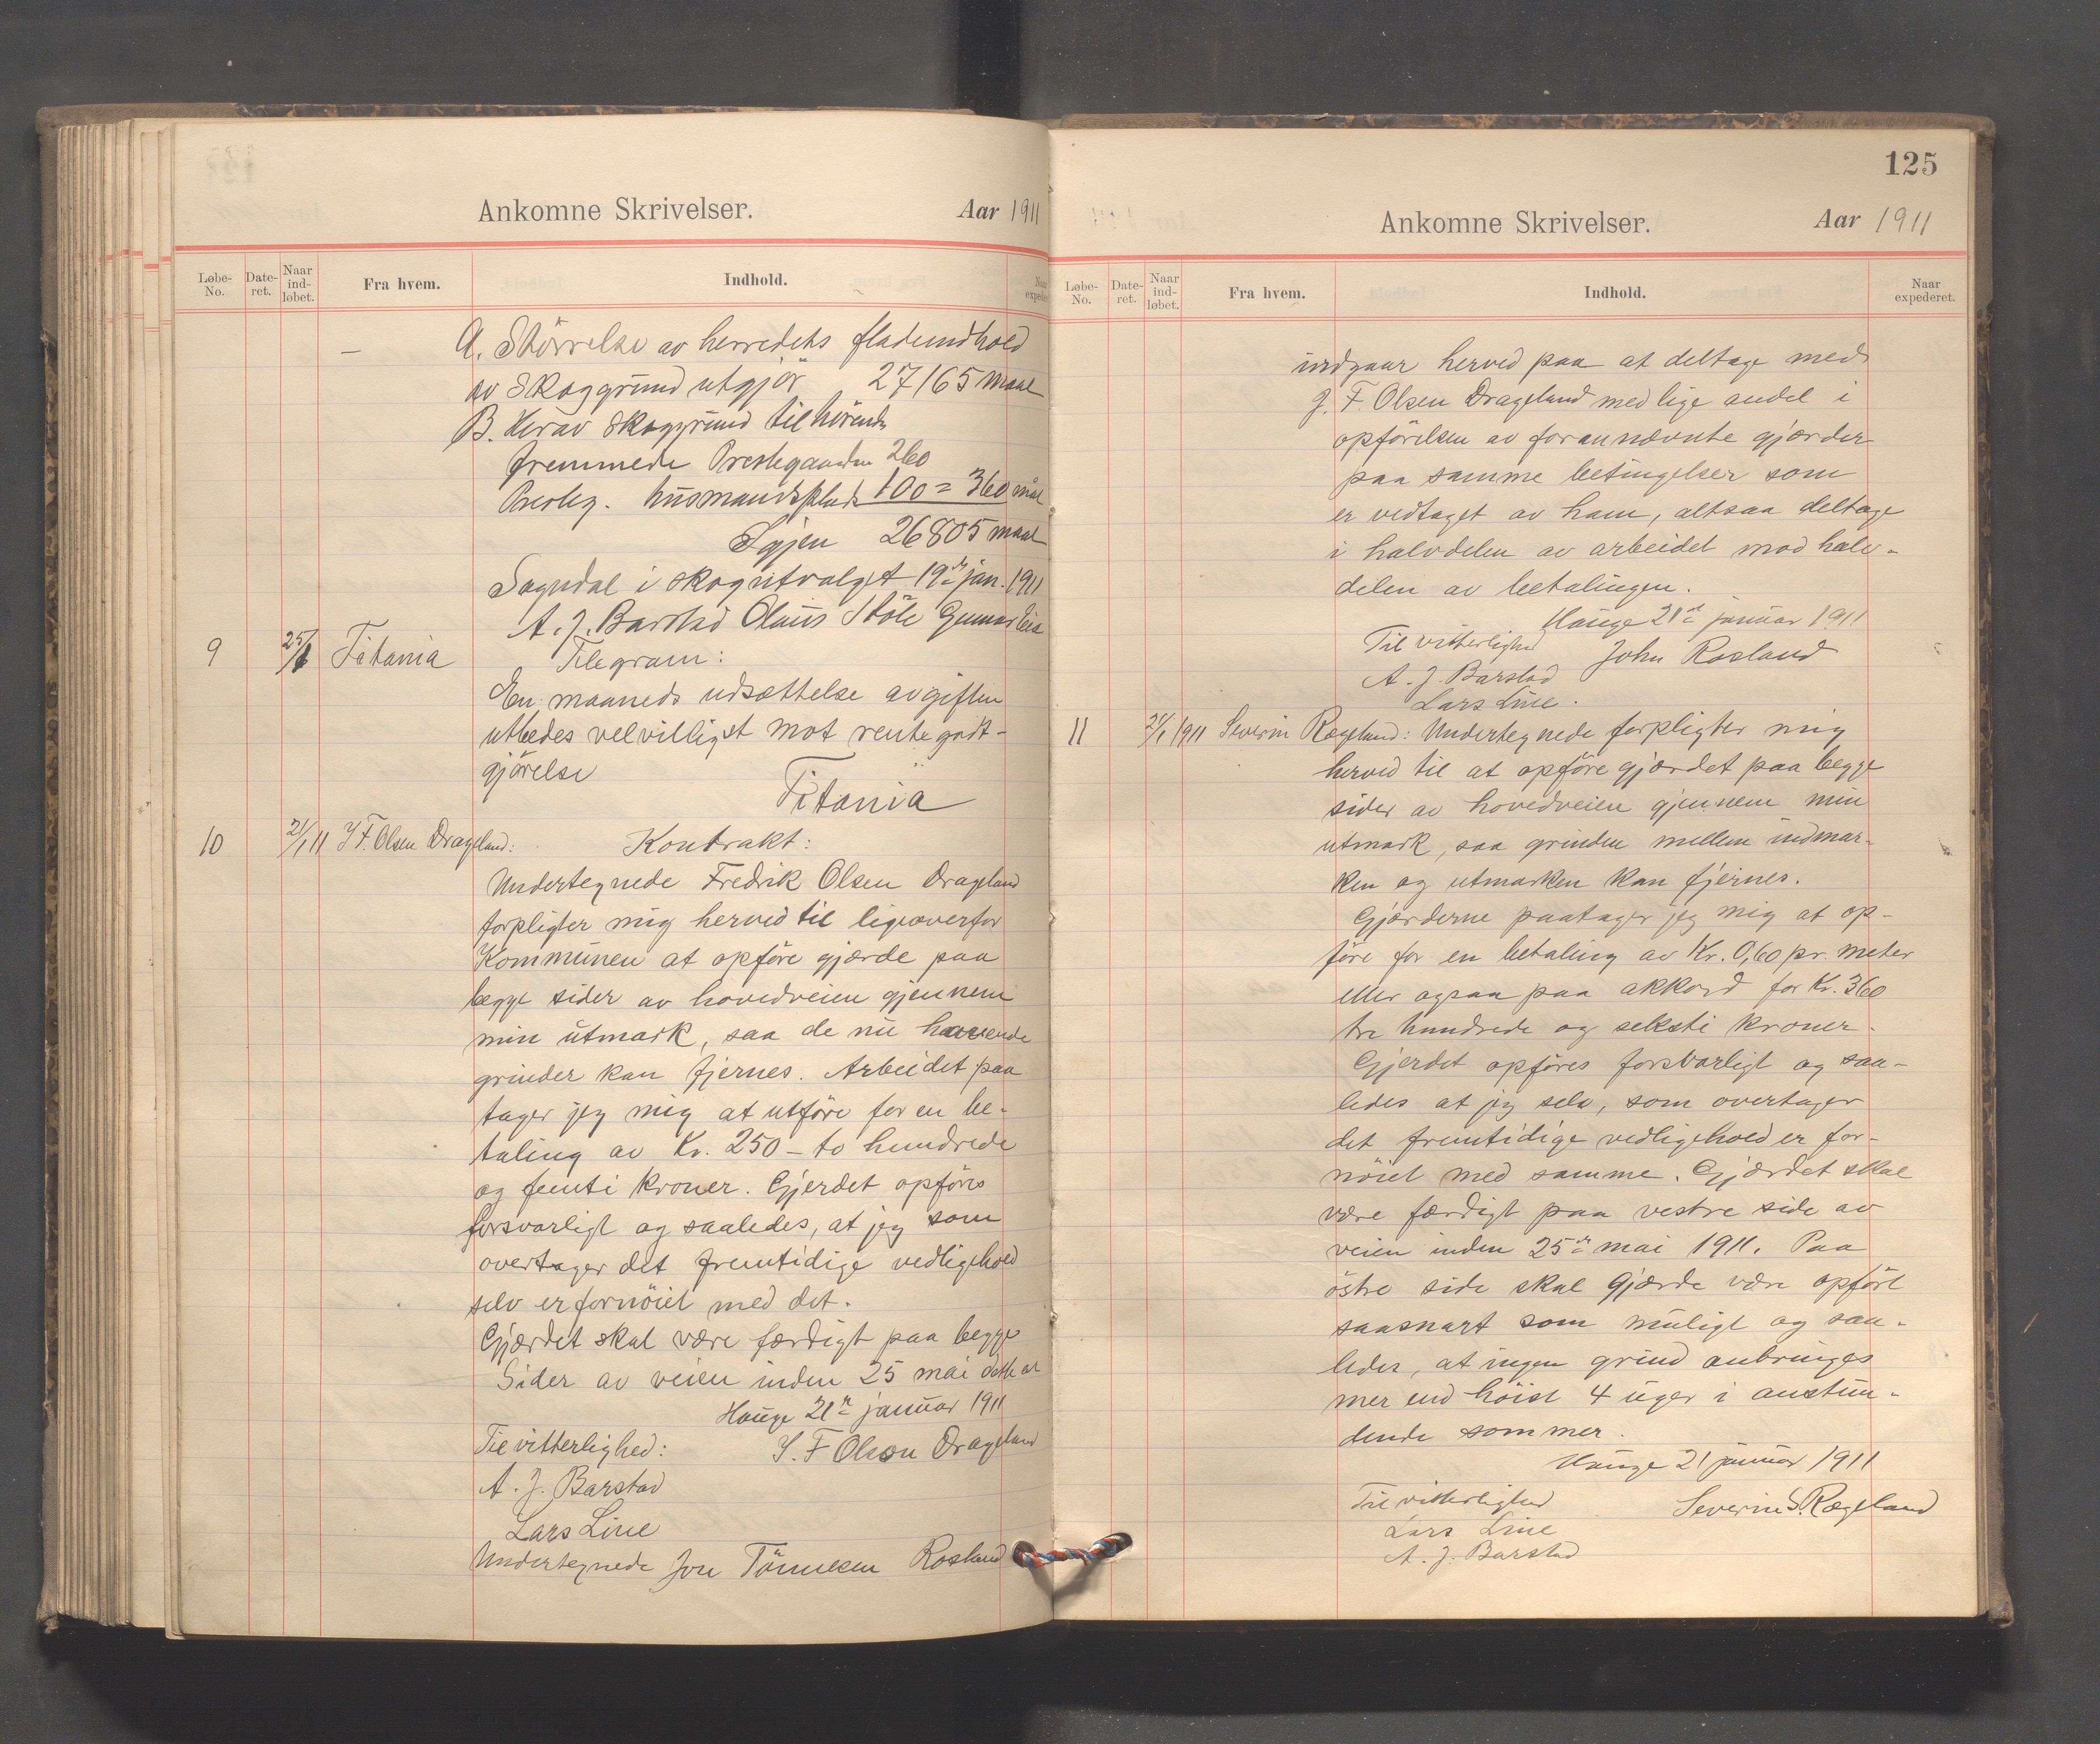 Ankomne Skrivelser. Aar 1911
Løbe-No. Date-ret. Naar ind-løbet. Fra hvem. Indhold. Naar expederet.
A. Störrelse av herredets fladeindhold
av Skoggrund utgjör 27165 maal
B. Herav Skoggrund tilhörende
fremmede Prestegaarden 260
Presteg. husmandsplads 100 = 360 maal
Igjen 26805 maal
Sogndal i skogutvalget 19de jan. 1911
A. J. Barstad Olaus Stöle Gunnar Eia
9 25/1 Titania Telegram:
En maaneds udsættelse avgiften
utbedes velvilligst mot rentegodt-
gjörelse
Titania
10 21/1 11 J F. Olsen Drageland: Kontrakt:
Undertegnede Fredrik Olsen Drageland
forpligter mig herved til ligeoverfor
Kommunen at opföre gjærde paa
begge sider av hovedveien gjennem
min utmark, saa de nu havende
grinder kan fjernes. Arbeidet paa
tager jeg mig at utföre for en be-
taling av Kr. 250 – to hundrede
og femti kroner. Gjerdet opföres
forsvarligt og saaledes, at jeg som
overtager det fremtidige vedligehold
selv er fornöiet med det.
Gjærdet skal være færdigt paa begge
Sider av veien inden 25 mai dette år
Hauge 21de januar 1911
Til vitterlighed: J. F Olsen Drageland
A. J. Barstad
Lars Line
Undertegnede Jon Tönnesen Rosland
125
Ankomne Skrivelser. Aar 1911
Løbe-No. Date-ret. Naar ind-løbet. Fra hvem. Indhold. Naar expederet.
indgaar herved paa at deltage med
J. F. Olsen Drageland med lige andel i
opförelsen av forannævnte gjærder
paa samme betingelser som
er vedtaget av ham, altsaa deltage
i halvdelen av arbeidet mod halv-
delen av betalingen.
Hauge 21de januar 1911
Til vitterlighed John Rosland
A. J. Barstad
Lars Line.
11 21/1 1911 Severin Rægeland: Undertegnede forpligter mig
herved til at opföre gjærdet paa begge
sider av hovedveien gjennem min
utmark, saa grinden mellem indmar-
ken og utmarken kan fjernes.
Gjærderne paatager jeg mig at op-
före for en betaling av Kr. 0,60 pr. meter
eller ogsaa paa akkord for Kr. 360
tre hundrede og seksti kroner.
Gjerdet opföres forsvarligt og saa-
ledes at jeg selv, som overtager
det fremtidige vedligehold er for-
nöiet med samme. Gjærdet skal
være færdigt paa vestre side av
veien inden 25de mai 1911. Paa
östre side skal gjærde være opfört
saasnart som muligt og saa-
ledes, at ingen grind anbringes
mer end höist 4 uger i anstun-
dende sommer.
Hauge 21 januar 1911
Til vitterlighed Severin S. Rægeland
Lars Line
A. J. Barstad